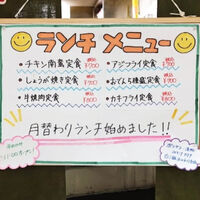 ランチ メニュー
・チキン南蛮定食 税込 ¥900
・しょうが焼き定食 税込 ¥900
・牛焼肉定食 税込 ¥800
・アジフライ定食 税込 ¥700
・おでん味噌定食 税込 ¥700
・カキフライ定食 税込 ¥800
月替わりランチ始めました!!